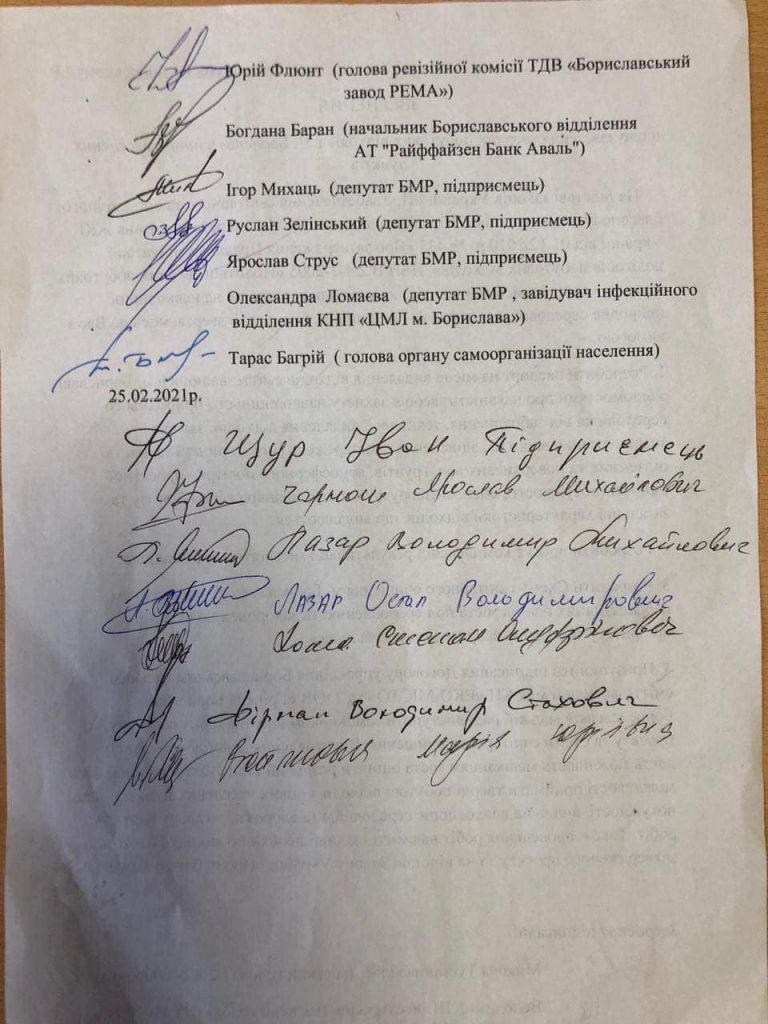 Юрій Флюнт (голова ревізійної комісії ТДВ «Бориславський
завод РЕМА»)
Богдана Баран (начальник Бориславського відділення
АТ "Райффайзен Банк Аваль")
Ігор Михаць (депутат БМР, підприємець)
Руслан Зелінський (депутат БМР, підприємець)
Ярослав Струс (депутат БМР, підприємець)
Олександра Ломаєва (депутат БМР , завідувач інфекційного
відділення КНП «ЦМЛ м. Борислава»)
Тарас Багрій ( голова органу самоорганізації населення)
25.02.2021р.
Щур Іван Підприємець
Ярослав Михайлович
Лазар Володимир Михайлович
Лазар Остап Володимирович
Степан
Фірман Володимир Стахович
Марія Юріївна